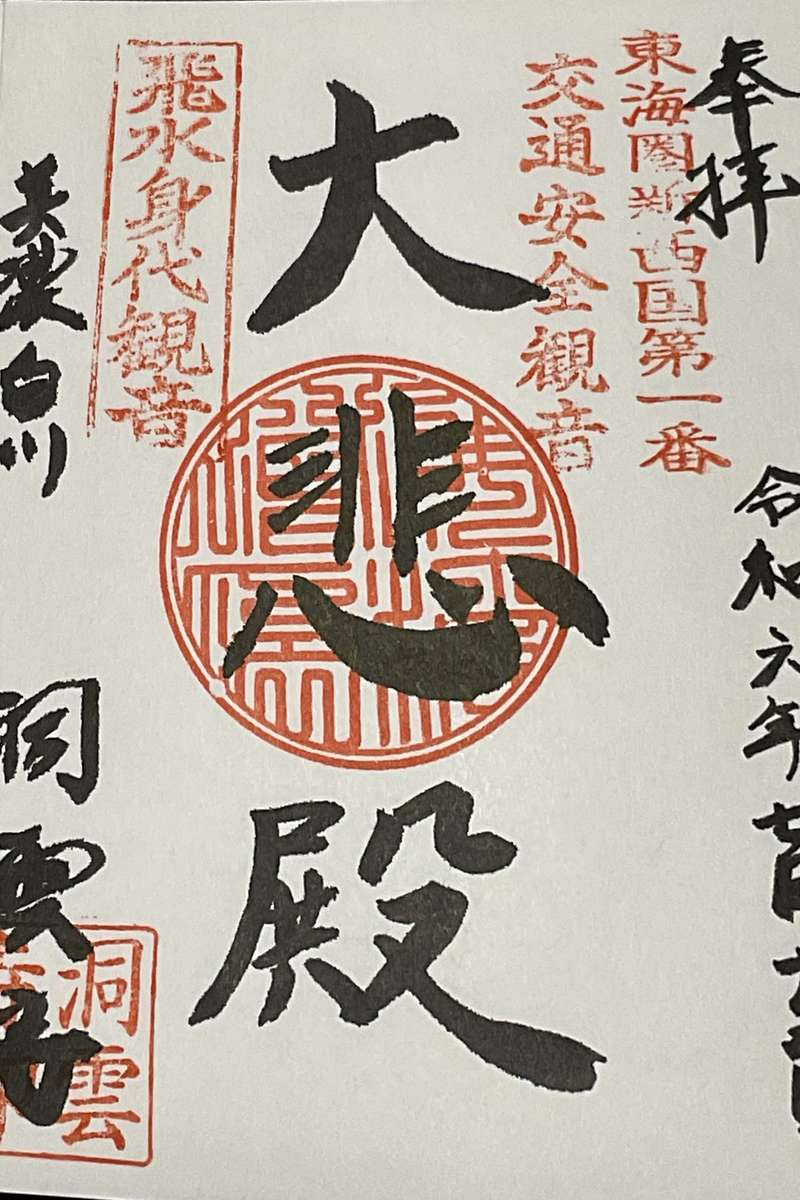 奉拝
令和六年
東海圏新西国第一番
交通安全観音
大悲殿
飛水身代観音
美濃白川
洞雲寺
洞雲